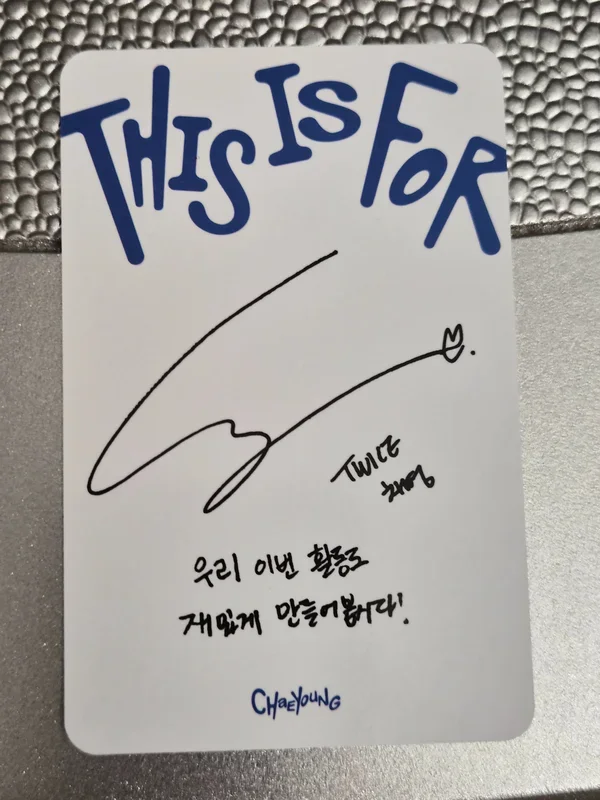 THIS IS FOR
TWICE
채영
우리 이번 활동도
재밌게 만들어봅시다!
CHaEYOUNG